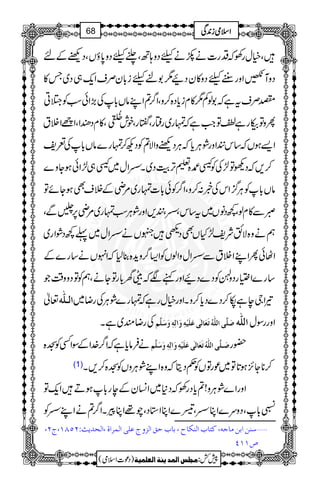 اسلامی زندگی 68
ہیں، خیال رکھو کہ قدرت نے پکڑنے کیلئے دو ہاتھ، چلنے کیلئے دو پاؤں، دیکھنے کے لئے
دو آنکھیں اور سننے کیلئے دو کان دئیے مگر بولنے کیلئے زبان صرف ایک ہی دی جس کا
مقصد صرف یہ ہے کہ بولو کم مگر کام زیادہ کرو، اگر تم اپنے ماں باپ کی بڑائی سب کو جتلاتی
پھرو تو بیکار ہے لطف تو جب ہے کہ تمہاری رفتار، گفتار، خوش خلقی، کام دھندا، اچھے اخلاق
ایسے ہوں کہ ساس نند اور شوہر ہر دیکھنے والا تم کو دیکھ کر تمہارے ماں باپ کی تعریف
کریں کہ دیکھو تو لڑکی کو کیسی عمدہ تعلیم تربیت دی۔ سسرال میں کیسی ہی لڑائی ہو جاوے
ماں باپ کو اس کی ہرگز خبر نہ کرو اگر کوئی بات تمہاری مرضی کے خلاف بھی ہو جائے تو
صبر سے کام لو، کچھ دنوں میں یہ ساس، سسر، نندیں اور شوہر سب تمہاری مرضی پر چلیں گے،
ہم نے وہ لائق شریف لڑکیاں بھی دیکھی ہیں جنہوں نے سسرال میں پہلے کچھ دشواری
اٹھائی پھر اپنے اخلاق سے سسرال والوں کو ایسا گرویدہ بنا لیا کہ انہوں نے سارے کے
سارے اختیار دلہن کو دے دئیے اور کہنے لگے کہ بیٹی گھر بار تو جانے، تو ہم کو دو وقت جو
تیرا جی چاہے پکا کر دے دیا کر۔ اور خیال رہے کہ تمہارے شوہر کی رضا میں اللہ تعالٰی
اور رسول اللہ صَلَّی اللہُ تَعَالٰی عَلَیْہِ وَاٰلِہٖ وَسَلَّم کی رضا مندی ہے۔
حضور صَلَّی اللہُ تَعَالٰی عَلَیْہِ وَاٰلِہٖ وَسَلَّم نے فرمایا ہے کہ اگر خدا کے سوا کسی کو سجدہ
کرنا جائز ہوتا تو میں عورتوں کو حکم دیتا کہ وہ اپنے شوہروں کو سجدہ کریں۔ (1)
اور اے شوہرو! تم یاد رکھو کہ دنیا میں انسان کے چار باپ ہوتے ہیں ایک تو
نسبی باپ، دوسرے اپنا سسر، تیسرے اپنا استاد، چوتھے اپنا پیر۔ اگر تم نے اپنے سسر کو
1......سنن ابن ماجہ، کتاب النکاح، باب حق الزوج علی المراة، الحدیث: ١٨٥٢، ج٢،
ص٤١١
پیش کش: مجلس المدینۃ العلمیۃ (دعوت اسلامی)